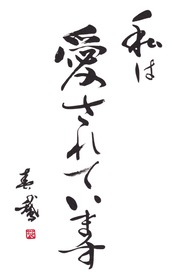 私は
愛されています